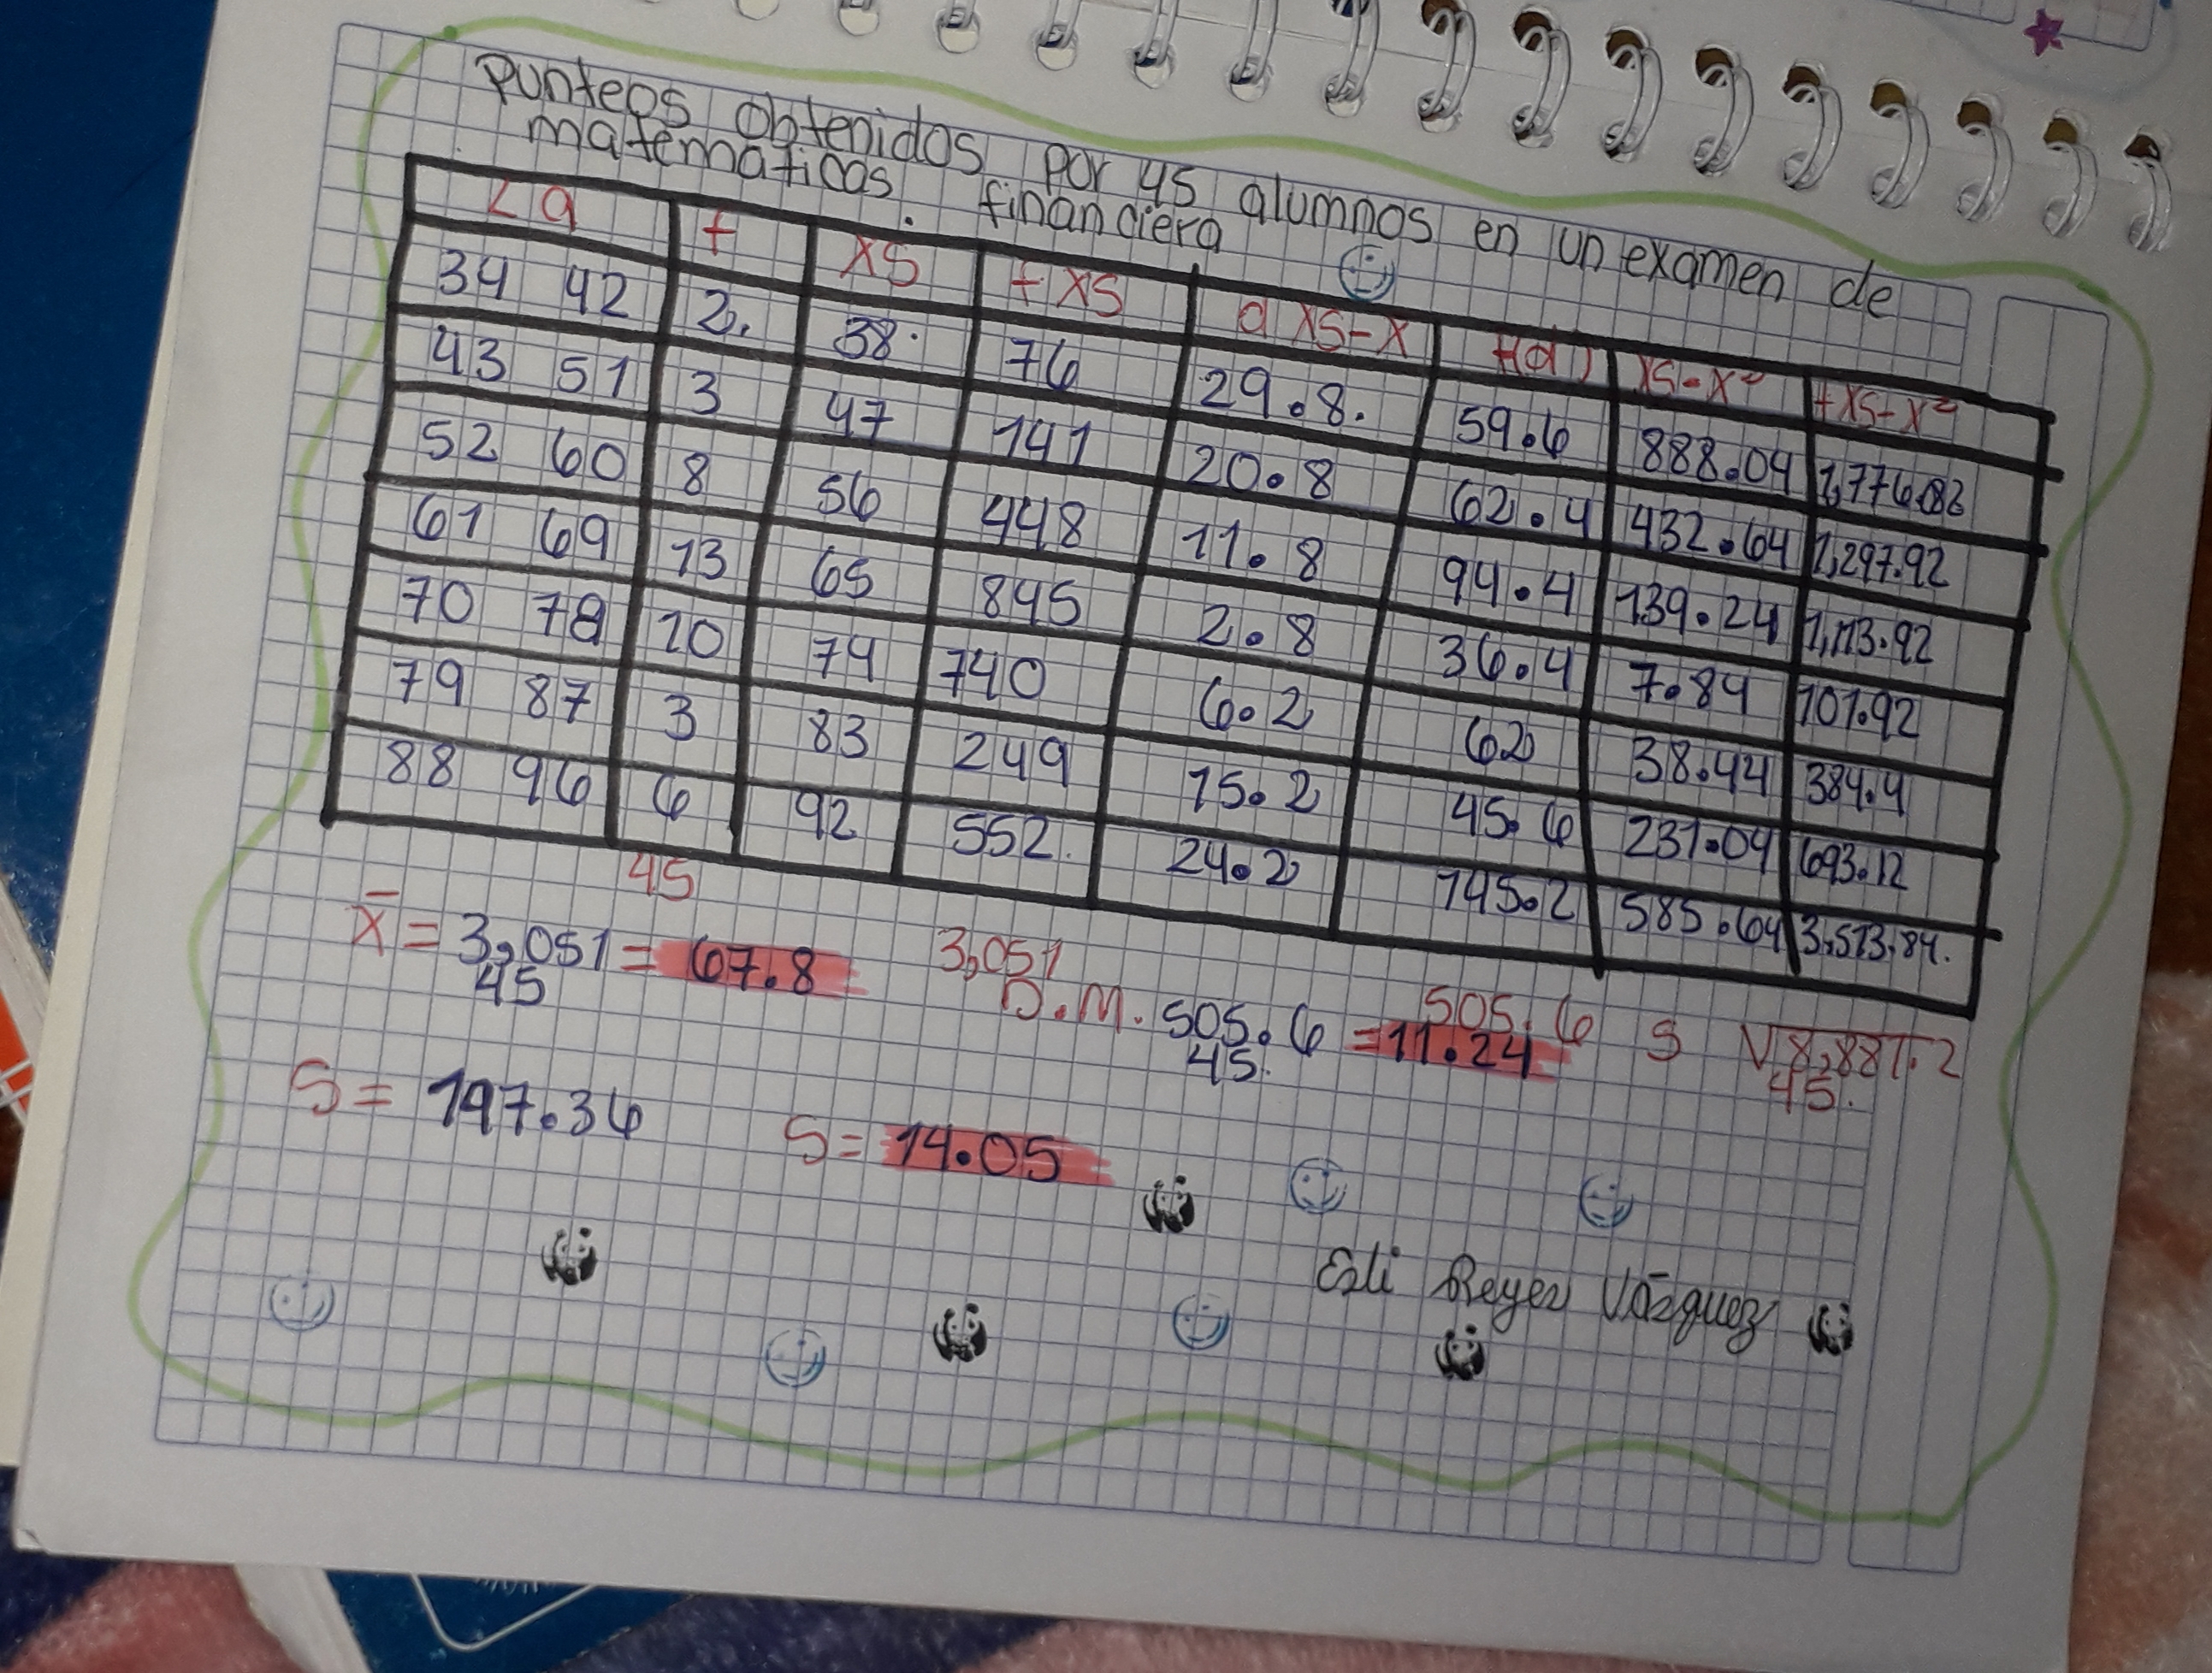 Punteos obtenidos por 45 alumnos en un examen de
matemáticas. financiera
La f XS fXS d XS-X f(d) XS-X² fXS-X²
34 42 2. 38. 76 29.8. 59.6 888.04 1,776.08
43 51 3 47 141 20.8 62.4 432.64 1,297.92
52 60 8 56 448 11.8 94.4 139.24 1,113.92
61 69 13 65 845 2.8 36.4 7.84 101.92
70 78 10 74 740 6.2 62 38.44 384.4
79 87 3 83 249 15.2 45.6 231.04 693.12
88 96 6 92 552. 24.2 145.2 585.64 3,513.84.
45 3,051 505.6
x̄ = 3,051 = 67.8 D.M. 505.6 = 11.24 S √8,881.2
45 45. 45.
S = 197.36 S = 14.05
Esli Reyes Vásquez